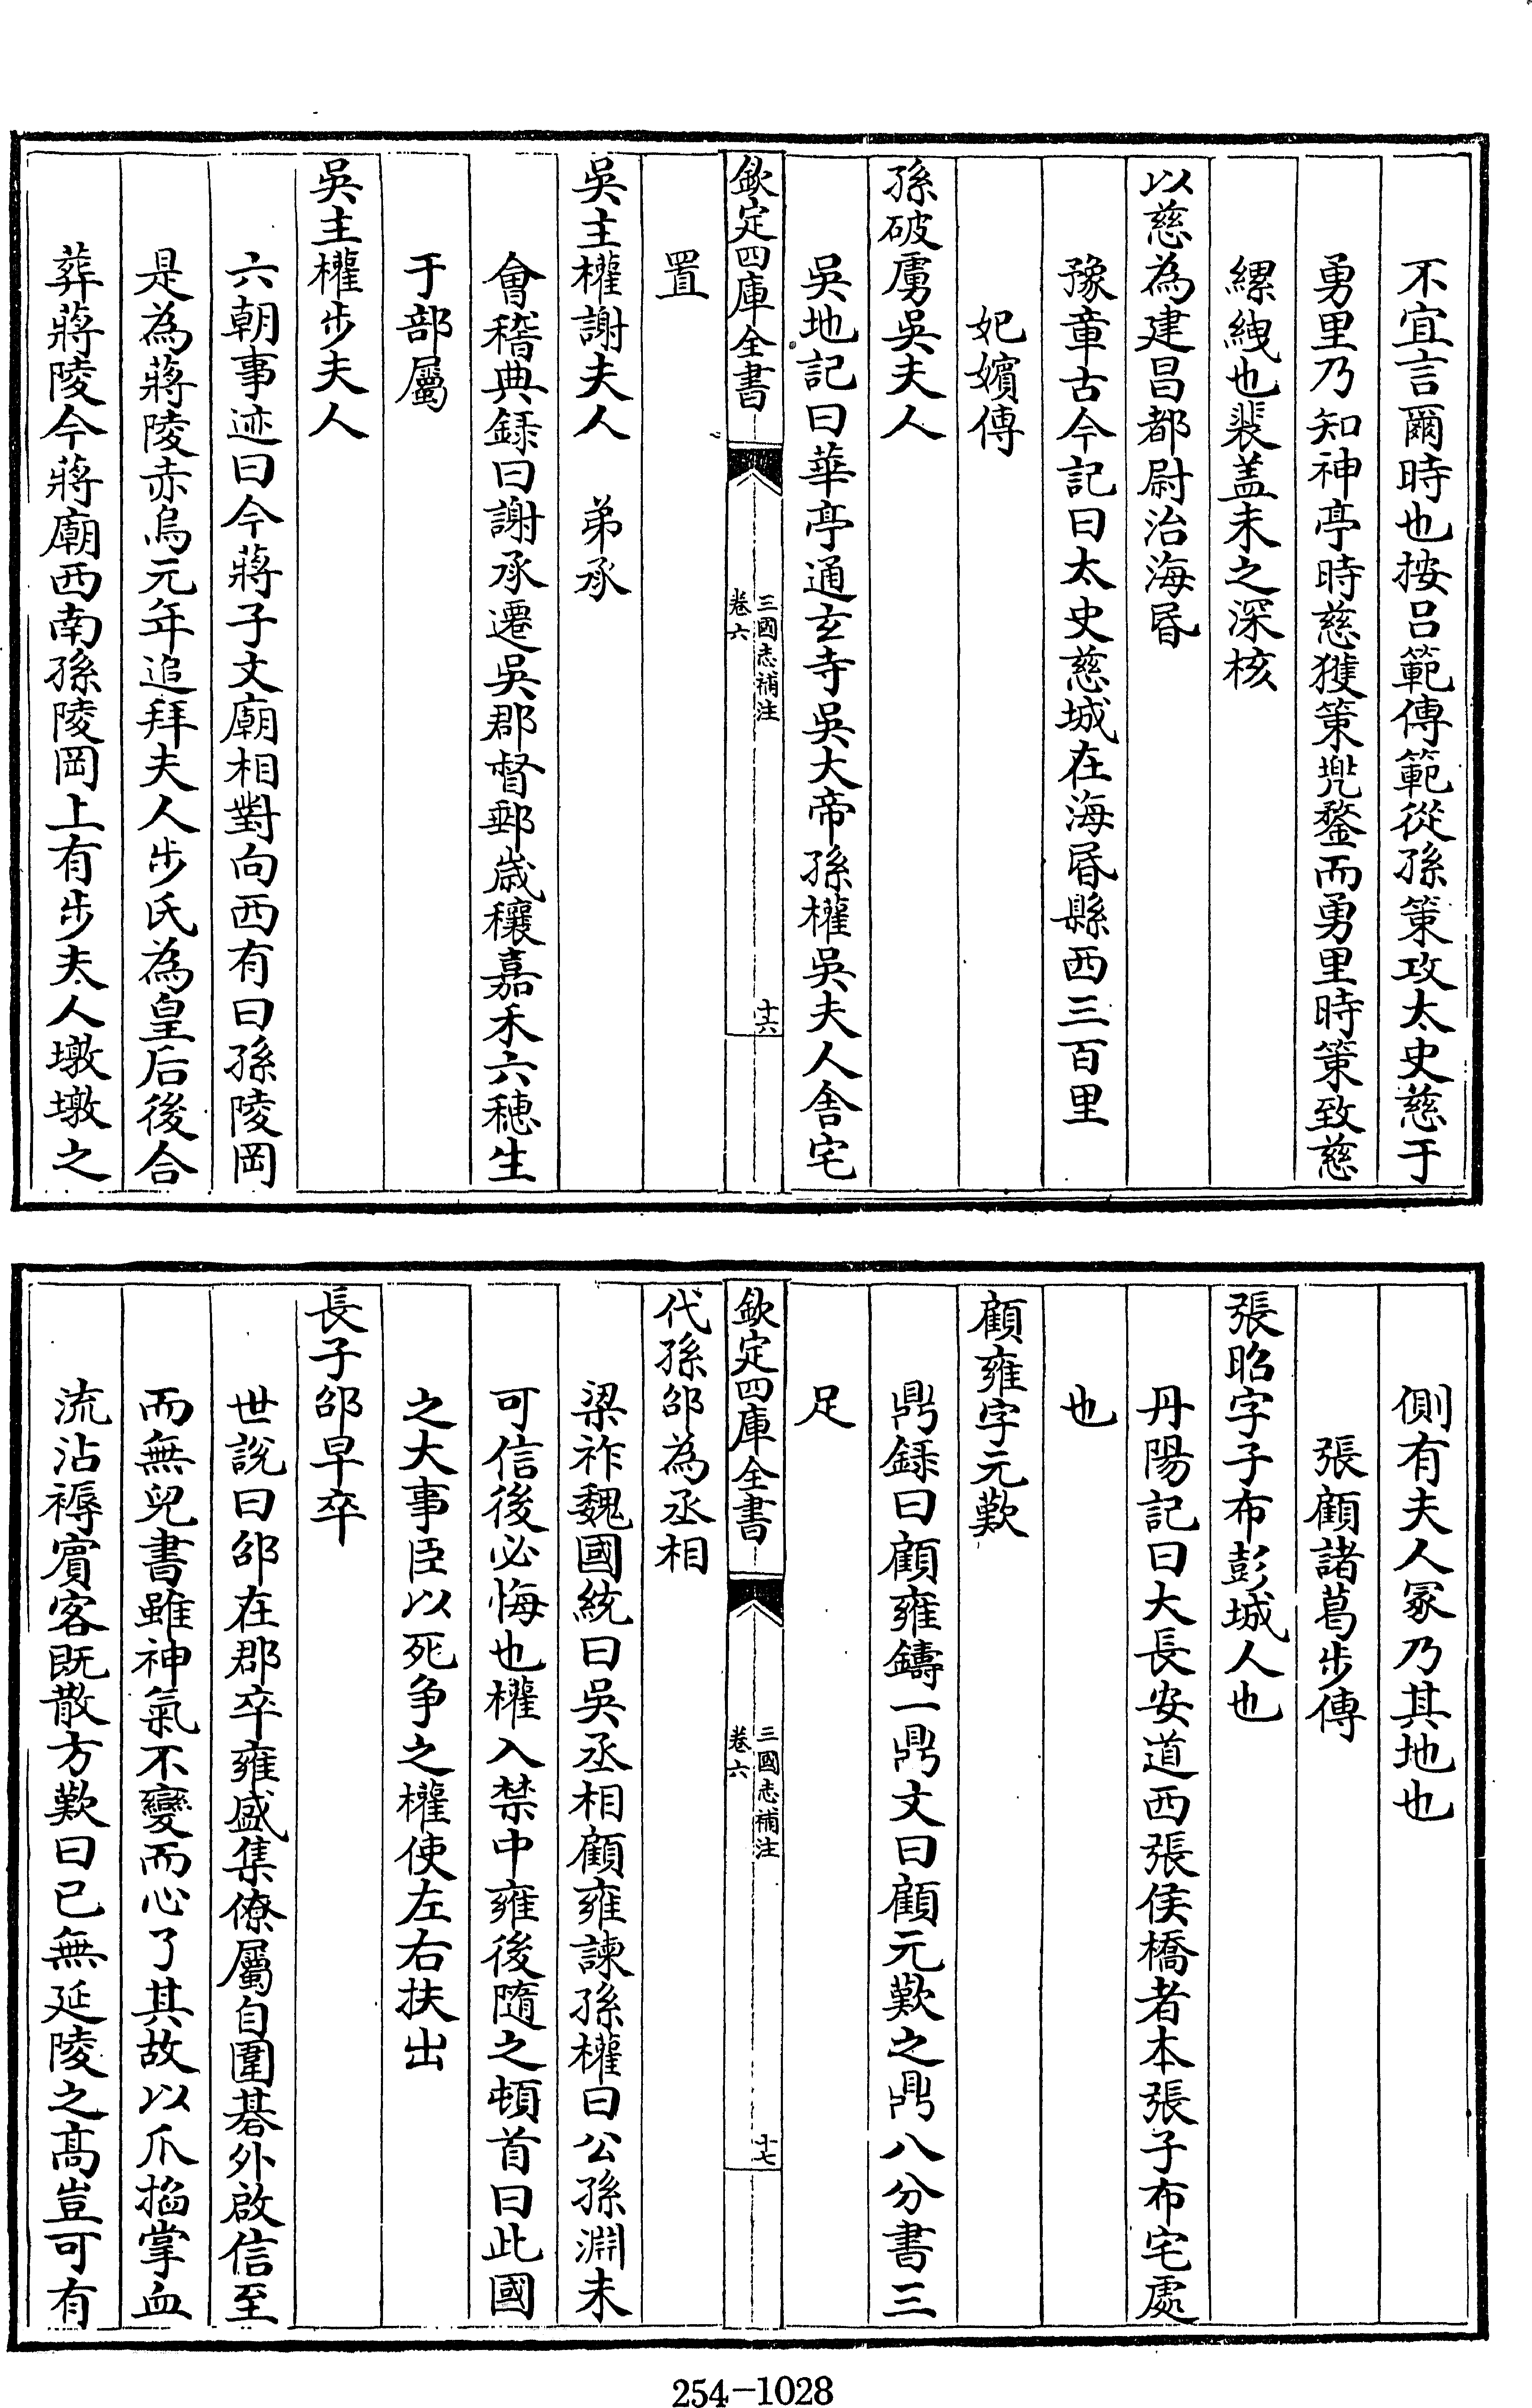 不宜言爾時也按吕範傳範從孫策攻太史慈于
勇里乃知神亭時慈獲策兠鍪而勇里時策致慈
縲絏也裴盖未之深核
以慈為建昌都尉治海昬
豫章古今記曰太史慈城在海昬縣西三百里
妃嬪傳
孫破虜吳夫人
吳地記曰華亭通玄寺吳大帝孫權吳夫人舍宅
欽定四庫全書
三國志補注
卷六
十六
置
吳主權謝夫人　弟承
會稽典録曰謝承遷吳郡督郵歲穰嘉禾六穗生
于部屬
吳主權步夫人
六朝事迹曰今蔣子文廟相對向西有曰孫陵岡
是為蔣陵赤烏元年追拜夫人步氏為皇后後合
葬蔣陵今蔣廟西南孫陵岡上有步夫人墩墩之
側有夫人冢乃其地也
張顧諸葛步傳
張昭字子布彭城人也
丹陽記曰大長安道西張侯橋者本張子布宅處
也
顧雍字元歎
鼎録曰顧雍鑄一鼎文曰顧元歎之鼎八分書三
足
欽定四庫全書
三國志補注
卷六
十七
代孫邵為丞相
梁祚魏國統曰吳丞相顧雍諫孫權曰公孫淵未
可信後必悔也權入禁中雍後隨之頓首曰此國
之大事臣以死争之權使左右扶出
長子邵早卒
世說曰邵在郡卒雍盛集僚屬自圍碁外啟信至
而無兒書雖神氣不變而心了其故以爪掐掌血
流沾褥賓客既散方歎曰已無延陵之髙豈可有
254-1028